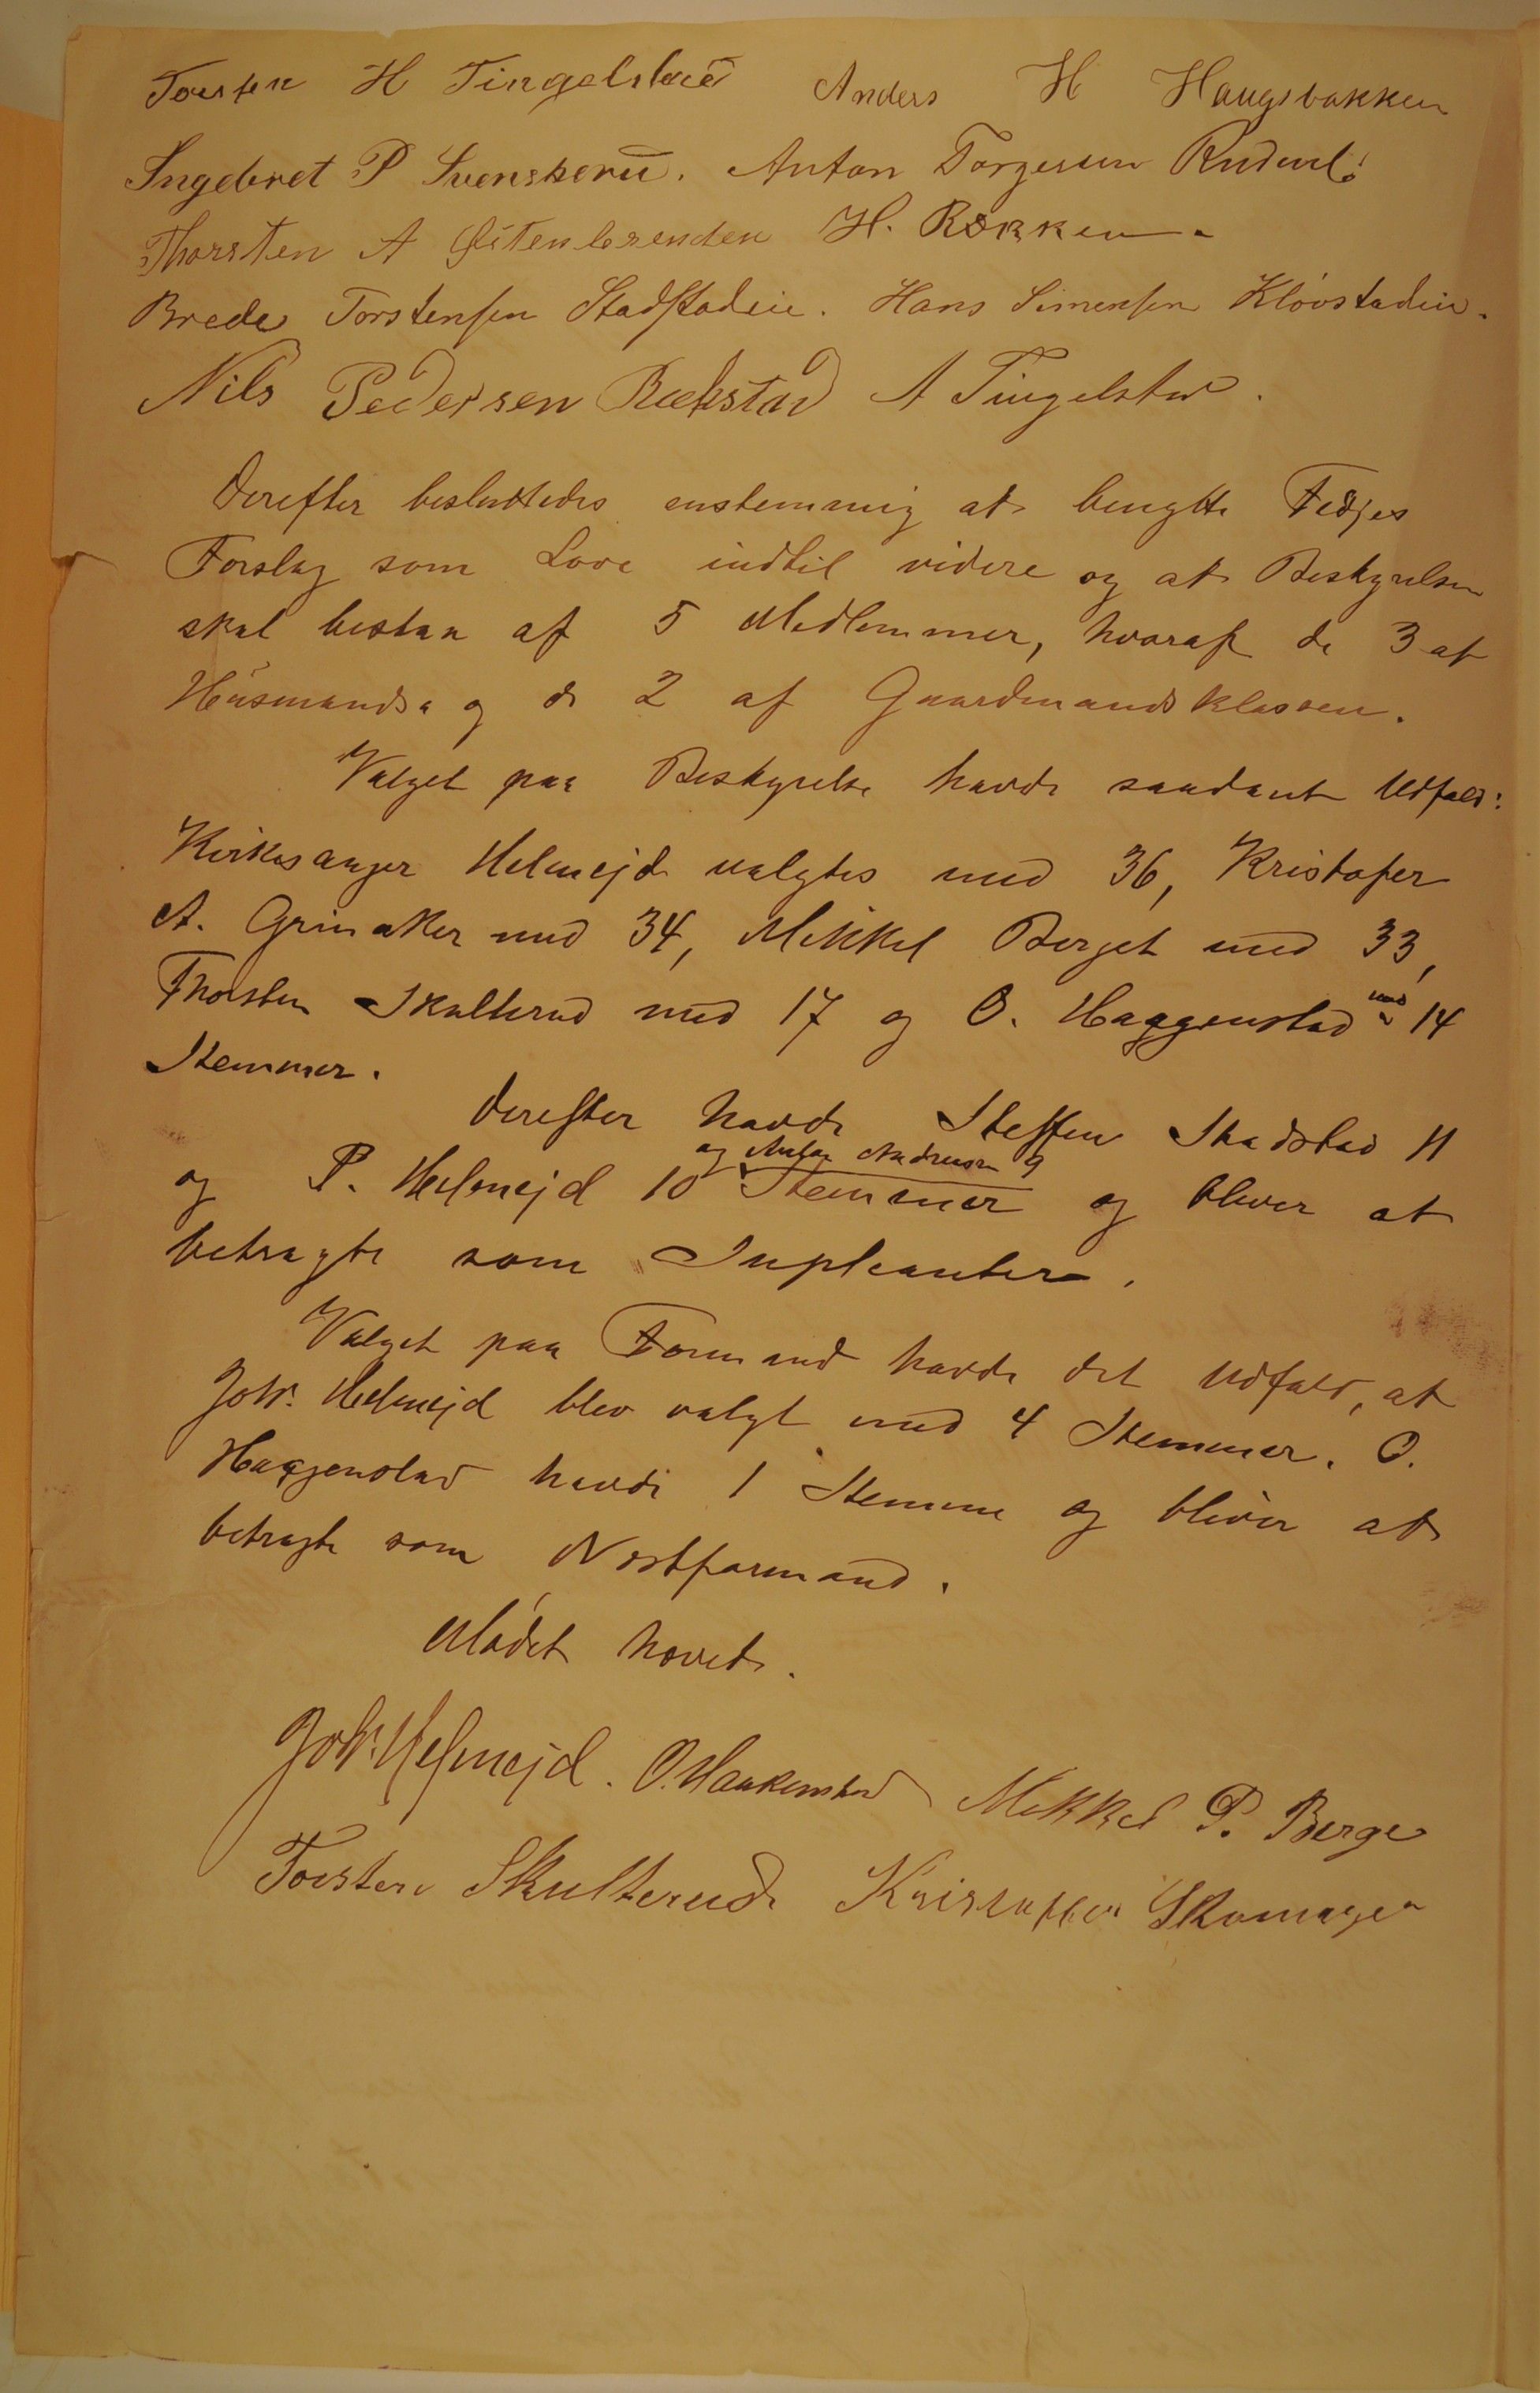 Torsten H Tingelstad Anders H Haugsbakken
Ingebret P Svenskerud. Anton Torgersen
Thorsten A H. Røkken.
Brede Torstensen Stadstadeie. Hans Simensen Kløvstadeie.
Nils Pedersen Rækstad A Tingelstad.
Derefter besluttedes enstemmig at benytte Fedjes
Forslag som Love indtil videre og at Bestyrelsen
skal bestaa af 5 Medlemmer, hvoraf de 3 af
Husmands- og de 2 af Gaardmandsklassen.
Valget paa Bestyrelse havde saadant Udfald:
Kirkesanger Helmejd valgtes med 36, Kristofer
A. Grinaker med 34, Mikkel Berget med 33,
Thorsten Skulterud med 17 og O. Haagenstad med 14
Stemmer.
Derefter havde Steffen Stadstad 11
og P. Helmejd 10 og Andreasen 9 Stemmer og bliver at
betragte som Supleanter.
Valget paa Formand havde det Udfald, at
Joh. Helmejd blev valgt med 4 Stemmer. O.
Haagenstad havde 1 Stemme og bliver at
betragte som Næstformand.
Mødet hævet.
Joh. Helmejd. O. Haakenstad Mikkel P. Berge
Torsten Skulterud Kristoffer Skomager